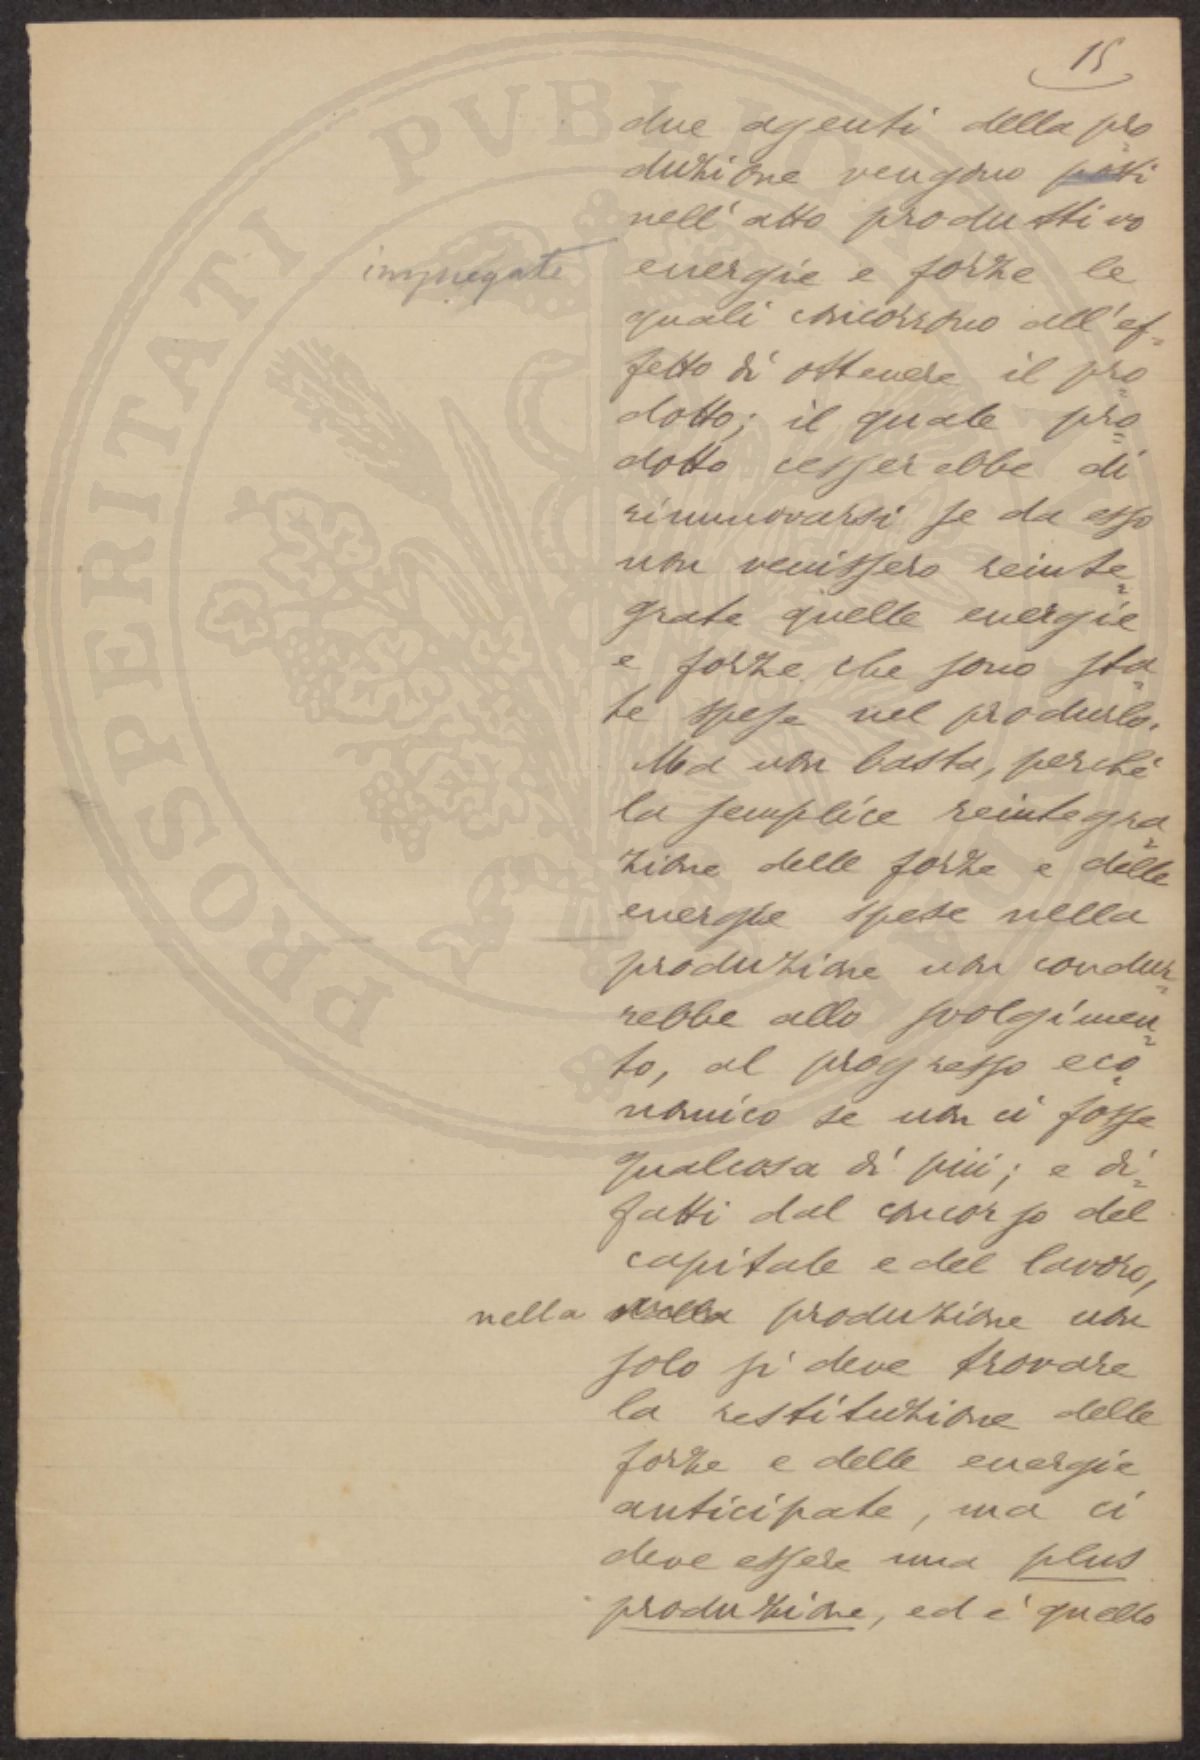 15
due agenti della pro=
duzione vengono posti
nell'atto produttivo
impiegate energie e forze le
quali concorrono all'ef=
fetto di ottenere il pro=
dotto; il quale pro=
dotto cesserebbe di
rinnuovarsi se da esso
non venissero reinte=
grate quelle energie
e forze che sono sta=
te spese nel produrlo.
Ma non basta, perchè
la semplice reintegra=
zione delle forze e delle
energie spese nella
produzione non condur=
rebbe allo svolgimen=
to, al progresso eco=
nomico se non ci fosse
qualcosa di più; e di=
fatti dal concorso del
capitale e del lavoro,
nella produzione non
solo si deve trovare
la restituzione delle
forze e delle energie
anticipate, ma ci
deve essere una plus
produzione, ed è quello
PROSPERITATI PVBLICAE AVGENDAE